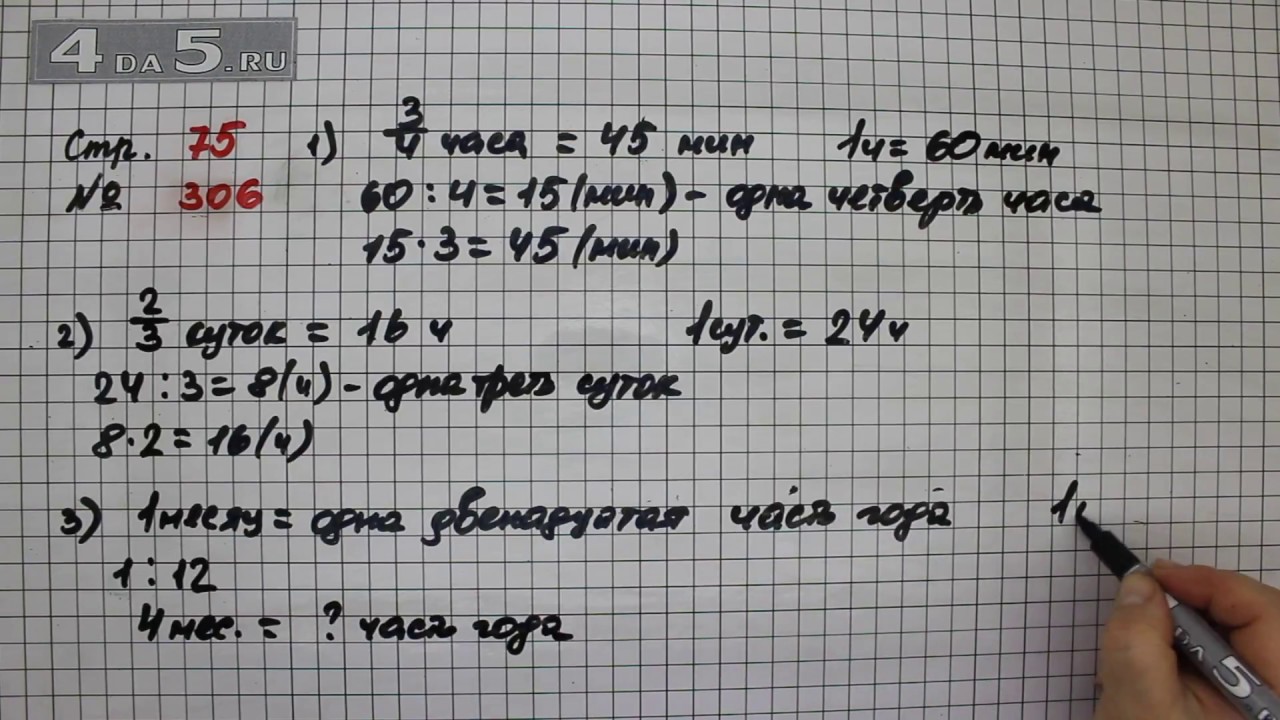 4DA5.RU
Стр. 75
№ 306
1) 3/4 часа = 45 мин 1ч = 60 мин
60 : 4 = 15 (мин) - одна четверть часа
15 · 3 = 45 (мин)
2) 2/3 суток = 16 ч 1 сут. = 24 ч
24 : 3 = 8 (ч) - одна треть суток
8 · 2 = 16 (ч)
3) 1 месяц = одна двенадцатая часть года 1
1 : 12
4 мес. = ? часть года
DA 5